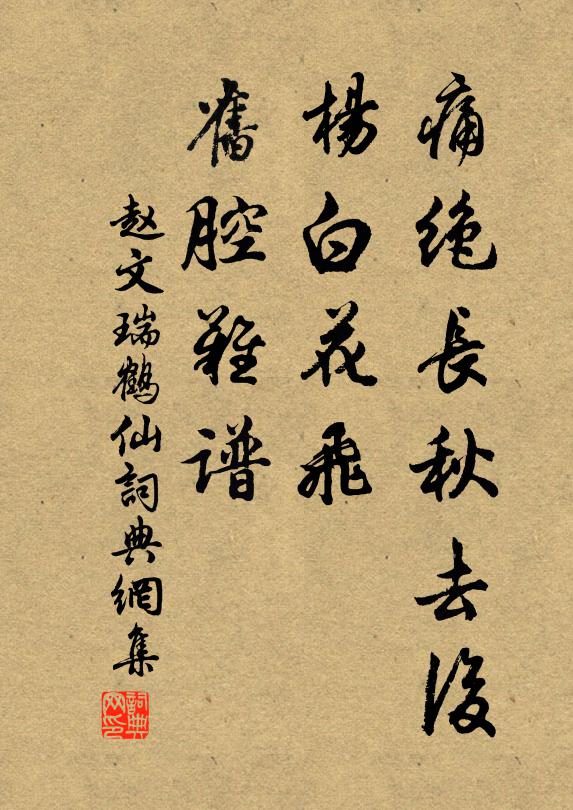 痛绝長秋去後
楊白花飛
舊腔難谱
赵文瑞鶴仙詞典網集
詞典网印